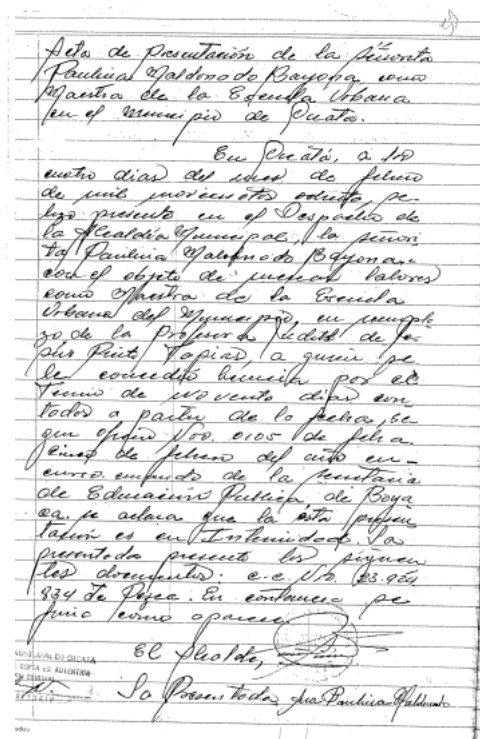 Acta de presentación de la señorita
Paulina Maldonado Bayona como
Maestra de la Escuela Urbana
en el municipio de Cucata.
En Cucatá, a los
cuatro dias del mes de febrero
de mil novecientos ochenta, se
hizo presente en el Despacho de
la Alcaldía Municipal, la señori
ta Paulina Maldonado Bayona..
con el objeto de iniciar labores
como Maestra de la Escuela
Urbana del Municipio, en reempla-
zo de la Profesora Judith de Je-
sús Prieto Tapias, a quien se
le concedió licencia por el
Termino de noventa dias con-
tados a partir de la fecha, se
gun oficio Nro. 0105 de fecha
cinco de febrero del año en-
curso emanado de la secretaria
de Educación Publica de Boya
ca, se aclara que la esta presen
tación es en Interinidad. La
presentada presento los siguien
tes documentos: c.c. Nro. 23.924
834 de Pesca. En constancia se
firma como aparece.
El Alcalde,
COPIA ES AUTENTICA
La Presentada, Ana Paulina Maldonado